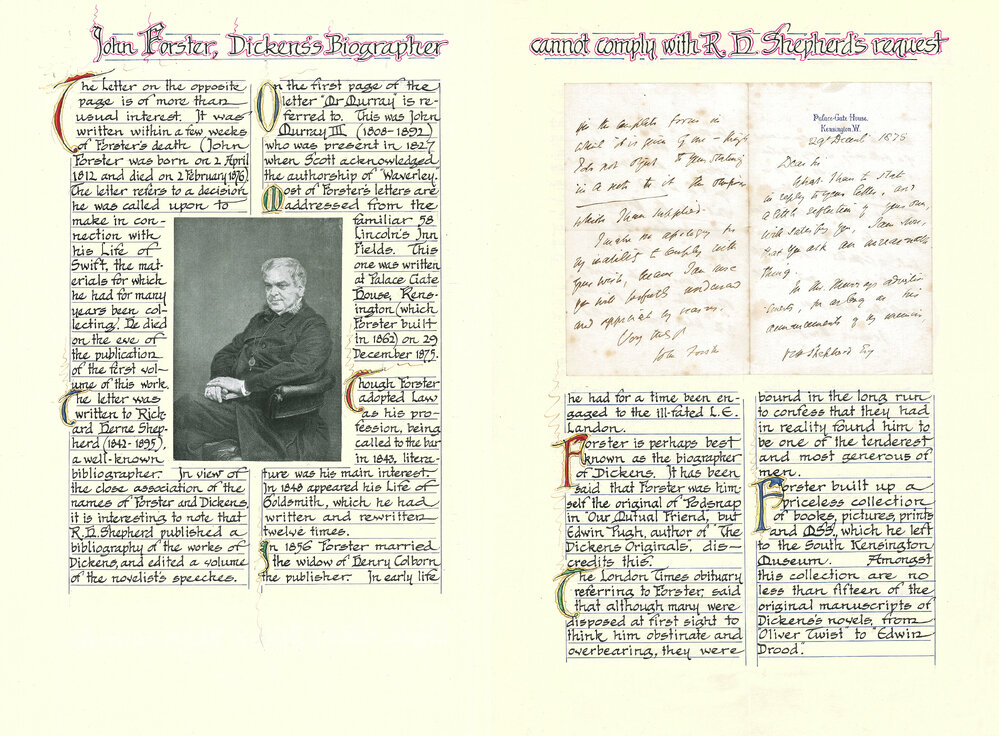 John Forster, Dickens's Biographer
The Letter on the opposite
page is of more than
usual interest. It was
written within a few weeks
of Forster's death (John
Forster was born on 2 April
1812 and died on 2 February 1876).
The letter refers to a decision
he was called upon to
make in con-
nection with
his Life of
Swift, 'the mat-
erials for which
he had for many
years been col-
lecting'. He died
on the eve of
the publication
of the first vol-
ume of this work.
The letter was
written to Rich-
ard Herne Shep-
herd (1842-1895),
a well-known
bibliographer. In view of
the close association of the
names of Forster and Dickens,
it is interesting to note that
R.H. Shepherd published a
bibliography of the works of
Dickens, and edited a volume
of the novelist's speeches.
On the first page of the
letter "Mr Murray" is re-
ferred to. This was John
Murray III (1808-1892)
who was present in 1827
when Scott acknowledged
the authorship of "Waverley.
Most of Forster's letters are
addressed from the
familiar 58
Lincoln's Inn
Fields. This
one was written
at Palace Gate
House, Kens-
ington (which
Forster built
in 1862) on 29
December 1875.
Though Forster
adopted Law
as his pro-
fession, being
called to the bar
in 1843, litera-
ture was his main interest.
In 1848 appeared his Life of
Goldsmith, which he had
written and rewritten
twelve times.
In 1856 Forster married
the widow of Henry Colborn
the publisher. In early life
cannot comply with R. H. Shepherd's request
in the complete form in
which it is given by me
I do not object to your stating
in a note to it the
which I have supplied.
I make no apology for
my inability to comply with
your wish, because I am sure
you will perfectly understand
and appreciate my reasons.
Very truly
John Forster
Palace-Gate House,
Kensington. W.
29th Decemb 1875
Dear Sir
What I have to state
in reply to your letter, and
a little reflection of your own,
will satisfy you, I am sure,
that you ask an
thing.
Murrays
as his
announcements of my
R H Shepherd Esq
he had for a time been en-
gaged to the ill-fated L.E.
Landon.
Forster is perhaps best
known as the biographer
of Dickens. It has been
said that Forster was him-
self the original of Podsnap
in "Our Mutual Friend, but
Edwin Pugh, author of "The
Dickens Originals, dis-
credits this.
The London Times obituary
referring to Forster, said
that although many were
disposed at first sight to
think him obstinate and
overbearing, they were
bound in the long run
to confess that they had
in reality found him to
be one of the tenderest
and most generous of
men.
Forster built up a
priceless collection
of books, pictures, prints
and MSS., which he left
to the South Kensington
Museum. Amongst
this collection are no
less than fifteen of the
original manuscripts of
Dickens's novels, from
Oliver Twist to "Edwin
Drood".